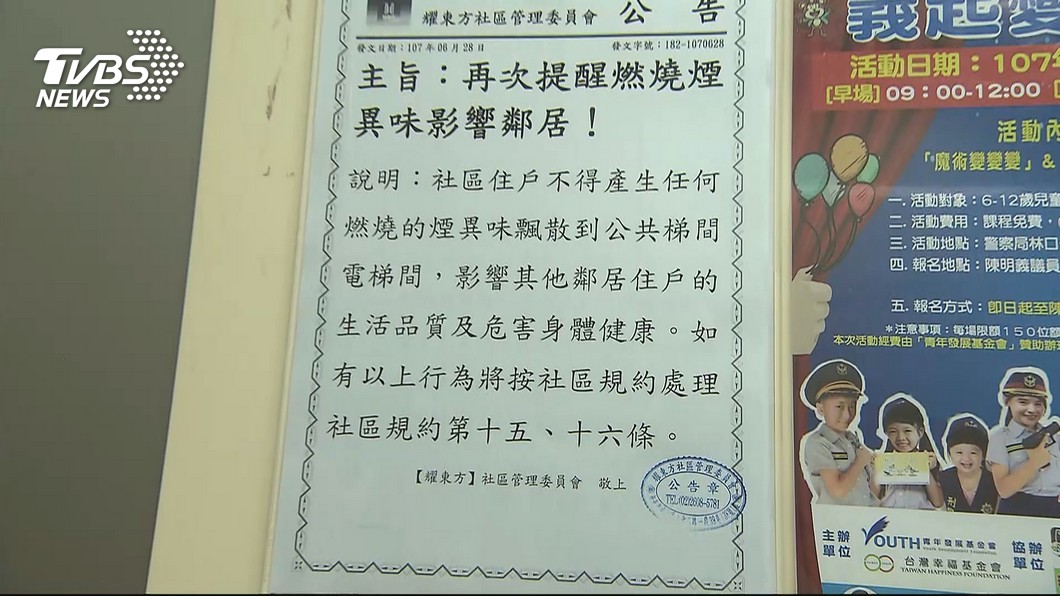 TVBS
NEWS
耀東方社區管理委員會 公告
發文日期：107年06月28日 發文字號：182-1070628
主旨：再次提醒燃燒煙
異味影響鄰居！
說明：社區住戶不得產生任何
燃燒的煙異味飄散到公共梯間
電梯間，影響其他鄰居住戶的
生活品質及危害身體健康。如
有以上行為將按社區規約處理
社區規約第十五、十六條。
【耀東方】社區管理委員會 敬上
耀東方社區管理委員會
公告章
TEL:(02)2608-5781
義起變
活動日期：107年
[早場] 09：00-12:00
活動內
「魔術變變變」&
一. 活動對象：6-12歲兒童
二. 活動費用：課程免費，
三. 活動地點：警察局林口
四. 報名地點：陳明義議員
五. 報名方式：即日起至陳
＊注意事項：每場限額150位額
本次活動經費由「青年發展基金會」贊助辦理
主辦
單位
YOUTH 青年發展基金會
Youth Development Foundation
台灣幸福基金會
TAIWAN HAPPINESS FOUNDATION
協辦
單位